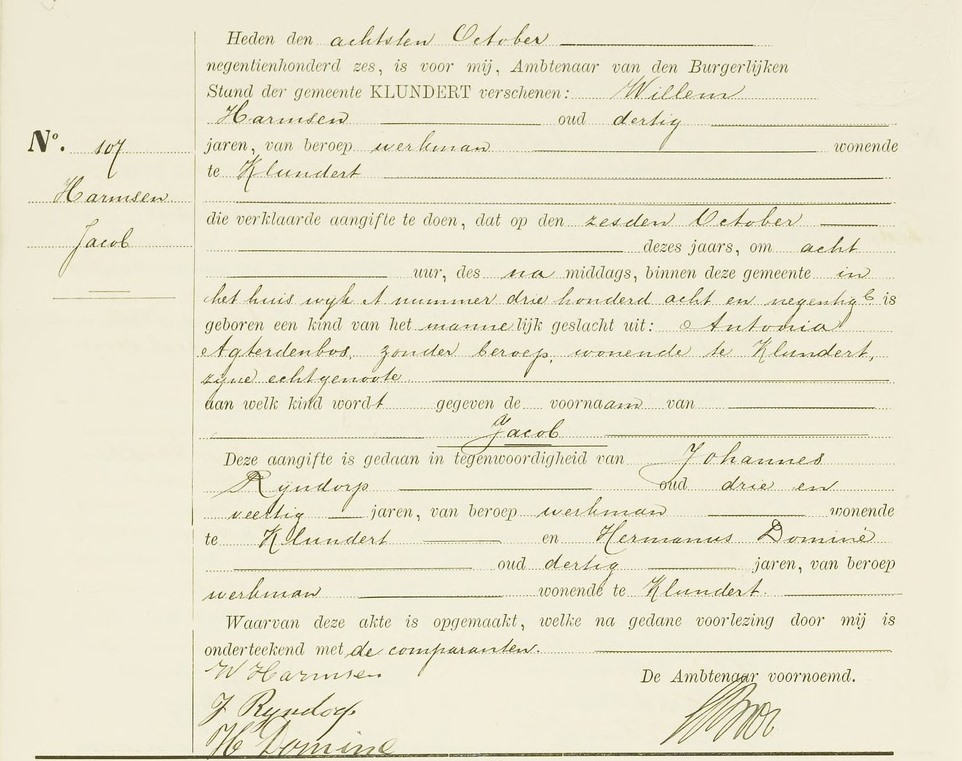 Heden den achtsten October
negentienhonderd zes, is voor mij, Ambtenaar van den Burgerlijken
Stand der gemeente KLUNDERT verschenen: Willem
Harmsen oud dertig
No. 107
jaren, van beroep werkman wonende
te Klundert
Harmsen
die verklaarde aangifte te doen, dat op den zesden October
Jacob
dezes jaars, om acht
uur, des na middags, binnen deze gemeente in
het huis wyk A nummer drie honderd acht en negentig is
geboren een kind van het mannelijk geslacht uit: Antonia
Agterdenbos, zonder beroep, wonende te Klundert,
zyne echtgenoote
aan welk kind wordt gegeven de voornaam van
Jacob
Deze aangifte is gedaan in tegenwoordigheid van Johannes
Ryndorp oud drie en
veertig jaren, van beroep werkman wonende
te Klundert en Hermanus Dominé
oud dertig jaren, van beroep
werkman wonende te Klundert.
Waarvan deze akte is opgemaakt, welke na gedane voorlezing door mij is
onderteekend met de comparanten.
W Harmsen
De Ambtenaar voornoemd.
J Ryndorp
H Domine